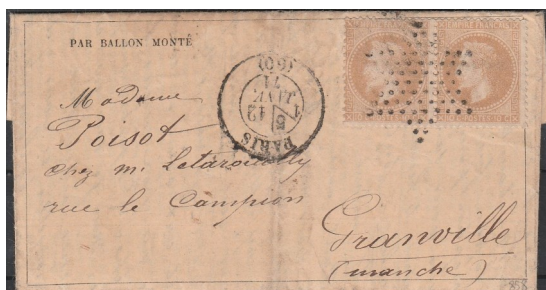 PAR BALLON MONTÉ
PARIS
5
12
JANV.
71
(60)
Madame
Poisot
chez m. Letarouilly
rue le Campion
Granville
(manche)